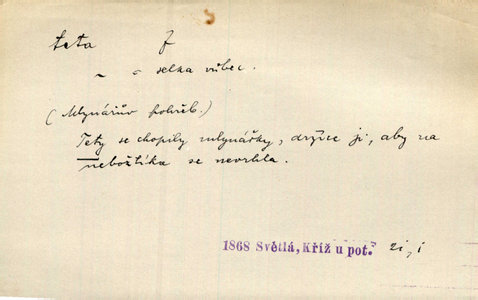 teta f
~ = selka vůbec.
(Mlynářův pohřeb.)
Tety se chopily mlynářky, držíce ji, aby na
nebožtíka se nevrhla.
1868 Světlá, Kříž u pot. 21, i